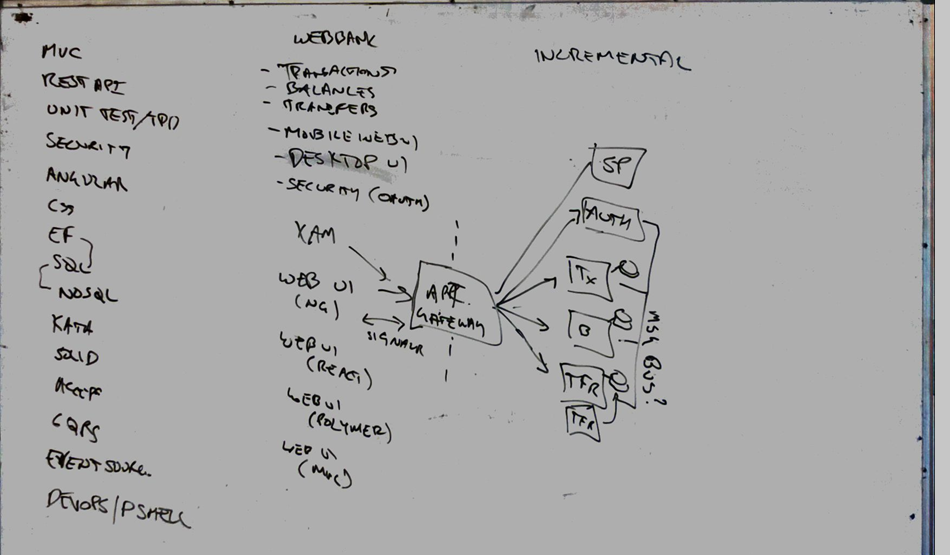 MVC
REST API
UNIT TEST/TDD
SECURITY
ANGULAR
CSS
EF
SQL
NOSQL
KATA
SOLID
CQRS
EVENT
DEVOPS/PSHELL
WEBBANK
- TRANSACTIONS
- BALANCES
- TRANSFERS
- MOBILE WEB UI
- DESKTOP UI
- SECURITY (OAUTH)
XAM
WEB UI
(NG)
SIGNALR
WEB UI
(REACT)
WEB UI
(POLYMER)
WEB UI
(MVC)
API
GATEWAY
INCREMENTAL
SP
AUTH
TX
B
TFR
TFR
MSG BUS?